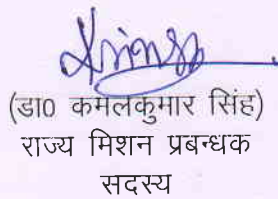 (डा0 कमलकुमार सिंह)
राज्य मिशन प्रबन्धक
सदस्य